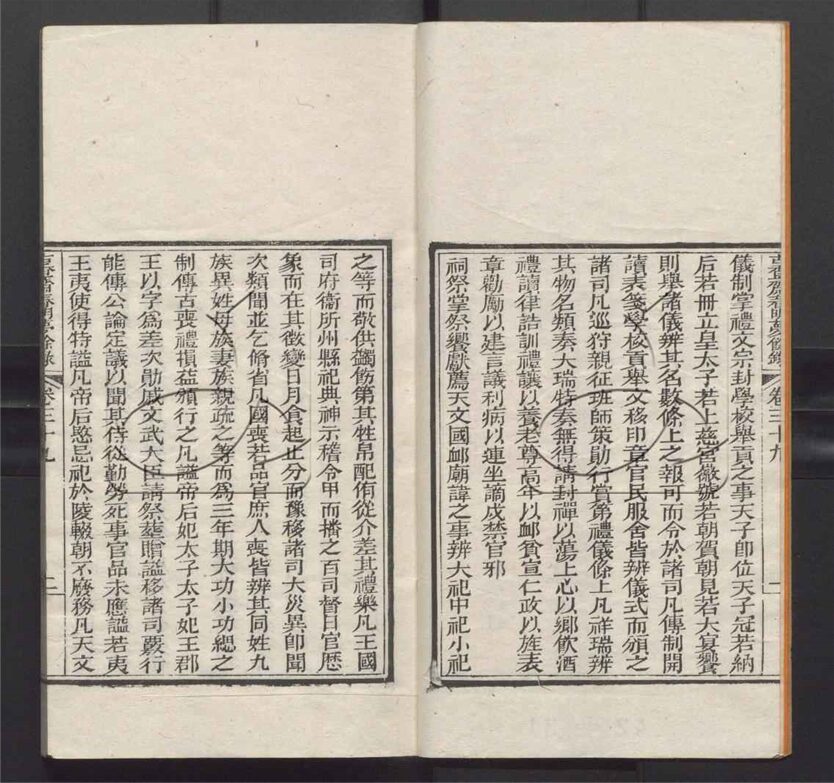 古香齋春明夢餘錄 卷三十九
儀制掌禮文宗封學校舉貢之事天子卽位天子冠若納
后若冊立皇太子若上慈宮徽號若朝賀朝見若大宴饗
則舉諸儀辨其名數條上之報可而令於諸司凡傳制開
讀表箋學校貢舉文移印章官民服舍皆辨儀式而頒之
諸司凡巡狩親征班師策勛行賞第禮儀條上凡祥瑞辨
其物名類奏大瑞特奏無得請封禪以蕩上心以鄉飲酒
禮讀律誥訓禮讓以養老尊高年以䘏貧宣仁政以旌表
章勸勵以建言議利病以連坐謫戍禁官邪
祠祭掌祭饗獻薦天文國䘏廟諱之事辨大祀中祀小祀
之等而敬供蠲飭第其牲帛配侑從介差其禮樂凡王國
司府衞所州縣祀典神示稽令甲而播之百司督日官歷
象而在其徵變日月食起止分而豫移諸司大災異卽聞
次類間並乞脩省凡國喪若品官庶人喪皆辨其同姓九
族異姓母族妻族親疏之等而爲三年期大功小功緦之
制傳古喪禮損益頒行之凡謚帝后妃太子太子妃王郡
王以字爲差次勛戚文武大臣請祭塟贈謚移諸司覈行
能傳公論定議以聞其侍從勤勞死事官品未應謚若夷
王夷使得特謚凡帝后愍忌祀於陵輟朝不廢務凡天文
古香齋春明夢餘錄 卷三十九 二